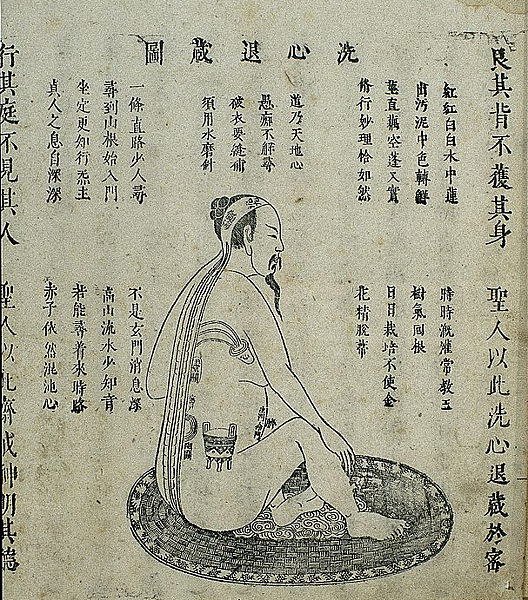 洗心退蔵圖
艮其背不獲其身
聖人以此洗心退蔵於密
紅紅白白水中蓮
出污泥中色轉鮮
莖直藕空蓬又實
修行妙理恰如然
道乃天地心
愚癡不解尋
破衣要縫補
須用水磨針
一條直路少人尋
尋到山根始入門
坐定更知行炁主
真人之息自深深
時時溉灌常教玉
樹氣回根
日日栽培不使金
花精脫蒂
不是玄門消息深
高山流水少知音
若能尋着來時路
赤子依然混沌心
行其庭不見其人
聖人以此齋戒神明其德